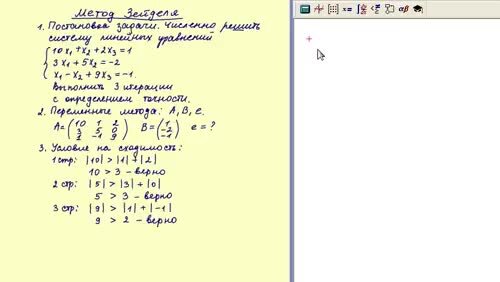 Метод Зейделя
1. Постановка задачи. Численно решить
систему линейных уравнений
10x₁+x₂+2x₃=1
3x₁+5x₂=-2
x₁-x₂+9x₃=-1.
Выполнить 3 итерации
с определением точности.
2. Переменные метода: A, B, e.
A=(10 1 2 B=(1 e=?
3 5 0 -2
1 -1 9) -1)
3. Условие на сходимость:
1 стр: |10| > |1| + |2|
10 > 3 - верно
2 стр: |5| > |3| + |0|
5 > 3 - верно
3 стр: |9| > |1| + |-1|
9 > 2 - верно